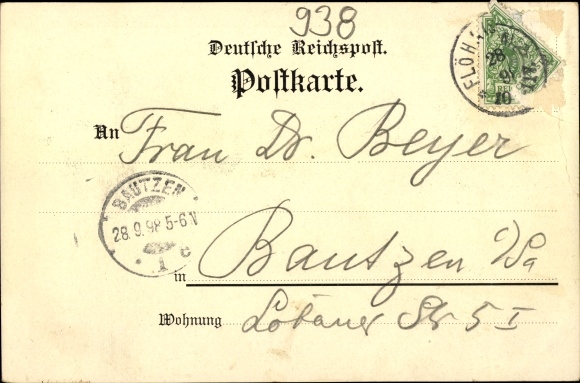 938
Deutsche Reichspost.
Postkarte.
FLÖH
28
9
10
An Frau Dr. Beyer
BAUTZEN
28.9.98 5-6 N
1 c
in Bautzen i/Sa
Wohnung Löbauer Str 5 I